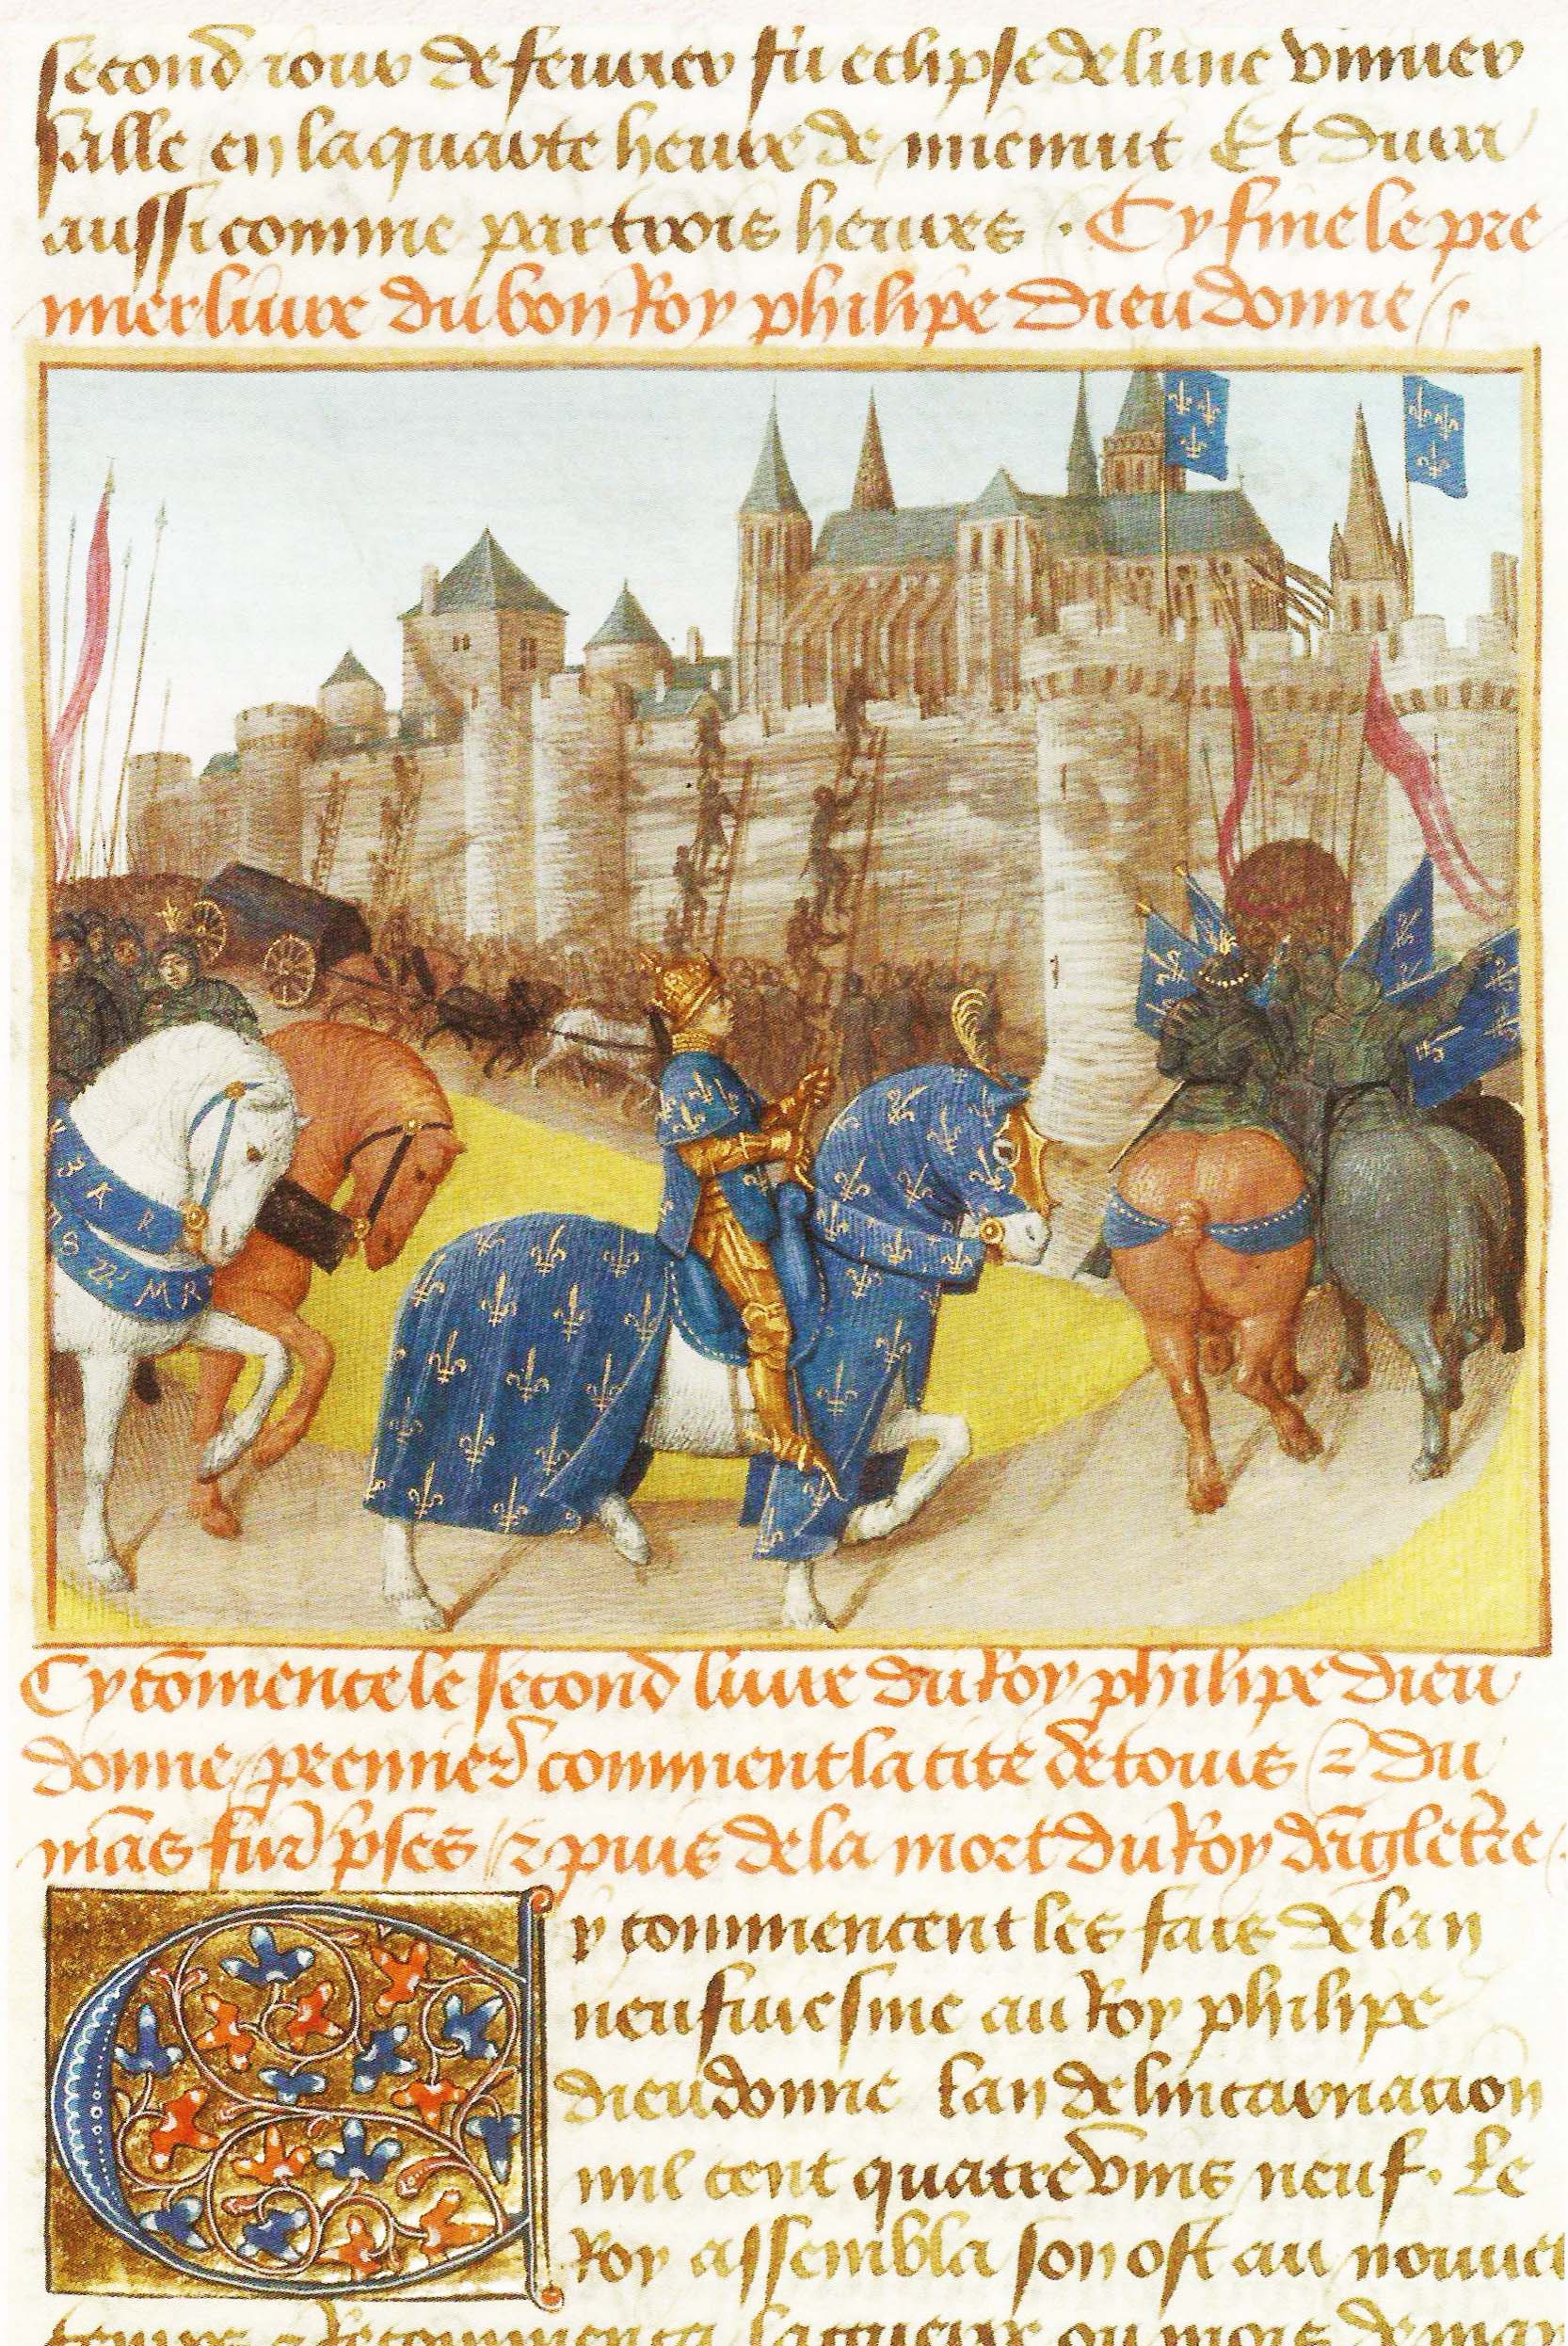 second iour de feurier fu eclipse de lune vniuer
salle en la quarte heure de mienuit Et dura
aussi comme par trois heures . Cy fine le pre
mier liure du bon Roy philipe Dieu donne
Cy cõmence le second liure du Roy philipe Dieu
donne premier̃ comment la cite de tours ⁊ du
mãs fur̃ p̃ses ⁊ puis de la mort du Roy dãgletr̃e
Cy commencent les fais de lan
neufuiesme au Roy philipe
dieudonne lan de lincarnacion
mil cent quatre vins neuf . Le
Roy assembla son ost au nouuel
temps ⁊ recommenca la guerre ou mois de mar